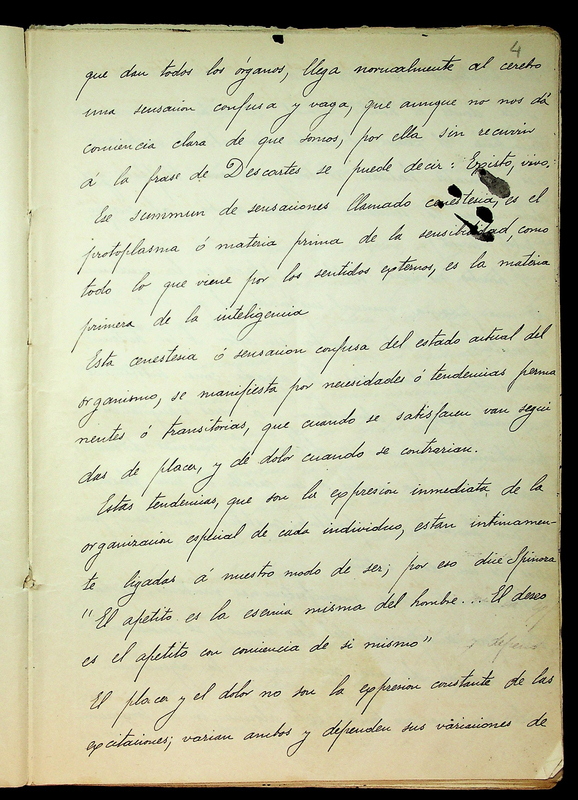 4
que dan todos los órganos, llega normalmente al cerebro
una sensacion confusa y vaga, que aunque no nos dá
conciencia clara de que somos, por ella sin recurrir
á la frase de Descartes se puede decir: Existo, vivo.
Ese summun de sensaciones llamado cenestesia, es el
protoplasma ó materia prima de la sensibilidad, como
todo lo que viene por los sentidos externos, es la materia
primera de la inteligencia
Esta cenestesia ó sensacion confusa del estado actual del
organismo, se manifiesta por necesidades ó tendencias perma
nentes ó transitorias, que cuando se satisfacen van segui
das de placer, y de dolor cuando se contrarian.
Estas tendencias, que son la expresion inmediata de la
organizacion especial de cada individuo, estan intimamen-
te ligadas á nuestro modo de ser; por eso dice Spinoza
"El apetito es la esencia misma del hombre... El deseo
es el apetito con conciencia de si mismo"
El placer y el dolor no son la expresion constante de las
excitaciones; varian ambos y dependen sus variaciones de